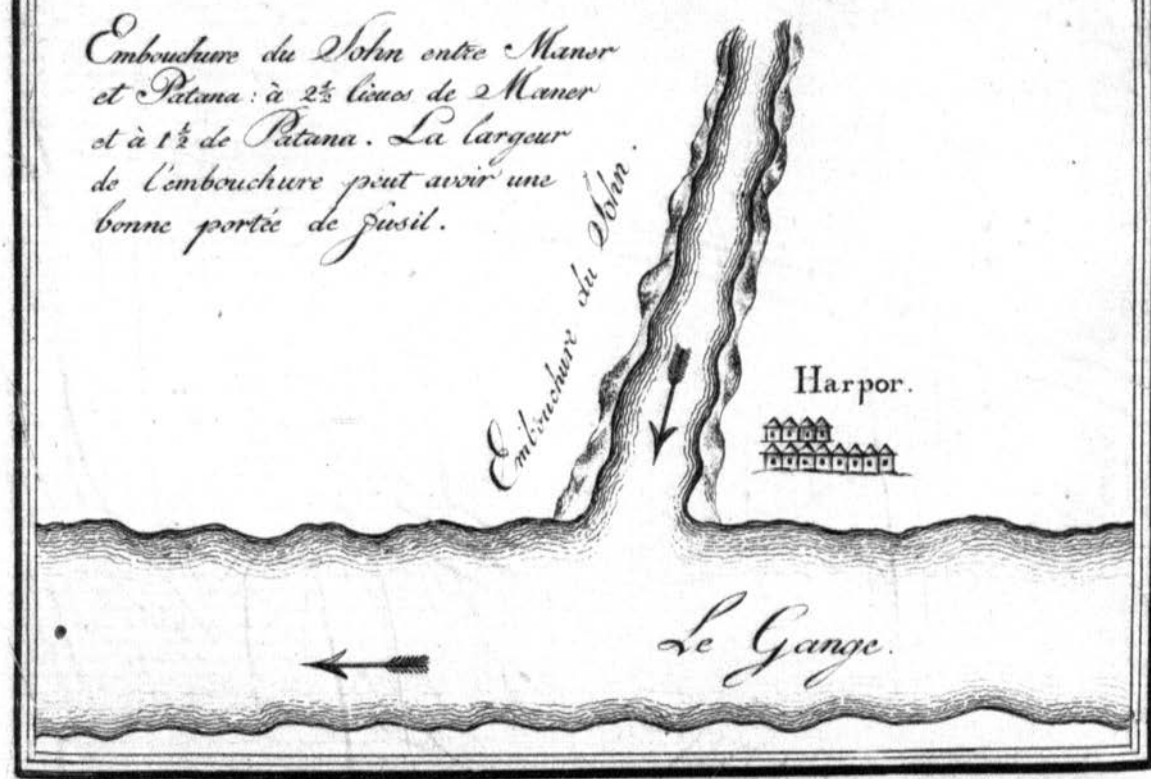 Embouchure du Sohn entre Maner
et Patana: à 2½ lieues de Maner
et à 1½ de Patana. La largeur
de l'embouchure peut avoir une
bonne portée de fusil.
Embouchure du Sohn.
Harpor.
Le Gange.